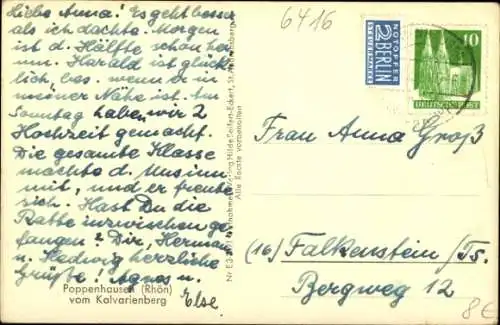 Liebe Anna! Es geht besser
als ich dachte. Morgen
ist d. Hälfte schon her
um. Harald ist glück
lich, bes. wenn er in
meiner Nähe ist. Am
Sonntag habe wir 2
Hochzeit gemacht.
Die gesamte Klasse
machte d. Unsinn
mit, und er freute
sich. Hast Du die
Ratte inzwischen ge
fangen? Dir, Herman
u. Hedwig herzliche
Grüße! Agnes u.
Else
Poppenhausen (Rhön)
vom Kalvarienberg
Alle Rechte vorbehalten
6416
NOTOPFER
2 BERLIN
STEUERMARKE
10
DEUTSCHE POST
Frau Anna Groß
(16) Falkenstein/Ts.
Bergweg 12
8€